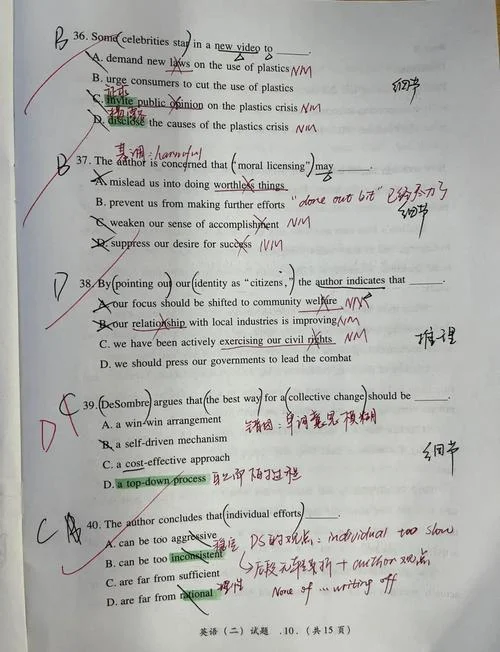 B 36. Some (celebrities star) in a new video to ____.
A. demand new laws on the use of plastics NM
B. urge consumers to cut the use of plastics
C. invite public opinion on the plastics crisis NM
细节
D. disclose the causes of the plastics crisis NM
基调: harmful
B 37. The author is concerned that ("moral licensing") may ____.
A. mislead us into doing worthless things
B. prevent us from making further efforts "done our bit" 已经尽力了
细节
C. weaken our sense of accomplishment NM
D. suppress our desire for success NM
D 38. By (pointing out) our (identity as "citizens",) the author indicates that ____.
A. our focus should be shifted to community welfare NM
B. our relationship with local industries is improving NM
C. we have been actively exercising our civil rights NM
推理
D. we should press our governments to lead the combat
D C 39. (DeSombre) argues that (the best way) for a (collective change) should be ____.
A. a win-win arrangement 错因: 单词意思模糊
B. a self-driven mechanism
细节
C. a cost-effective approach
D. a top-down process
C B 40. The author concludes that (individual efforts) ____.
A. can be too aggressive DS的观点: individual too slow
B. can be too inconsistent 后段无转折 + author观点
C. are far from sufficient None of ... writing off
D. are far from rational 理性
英语（二）试题 .10. （共15页）